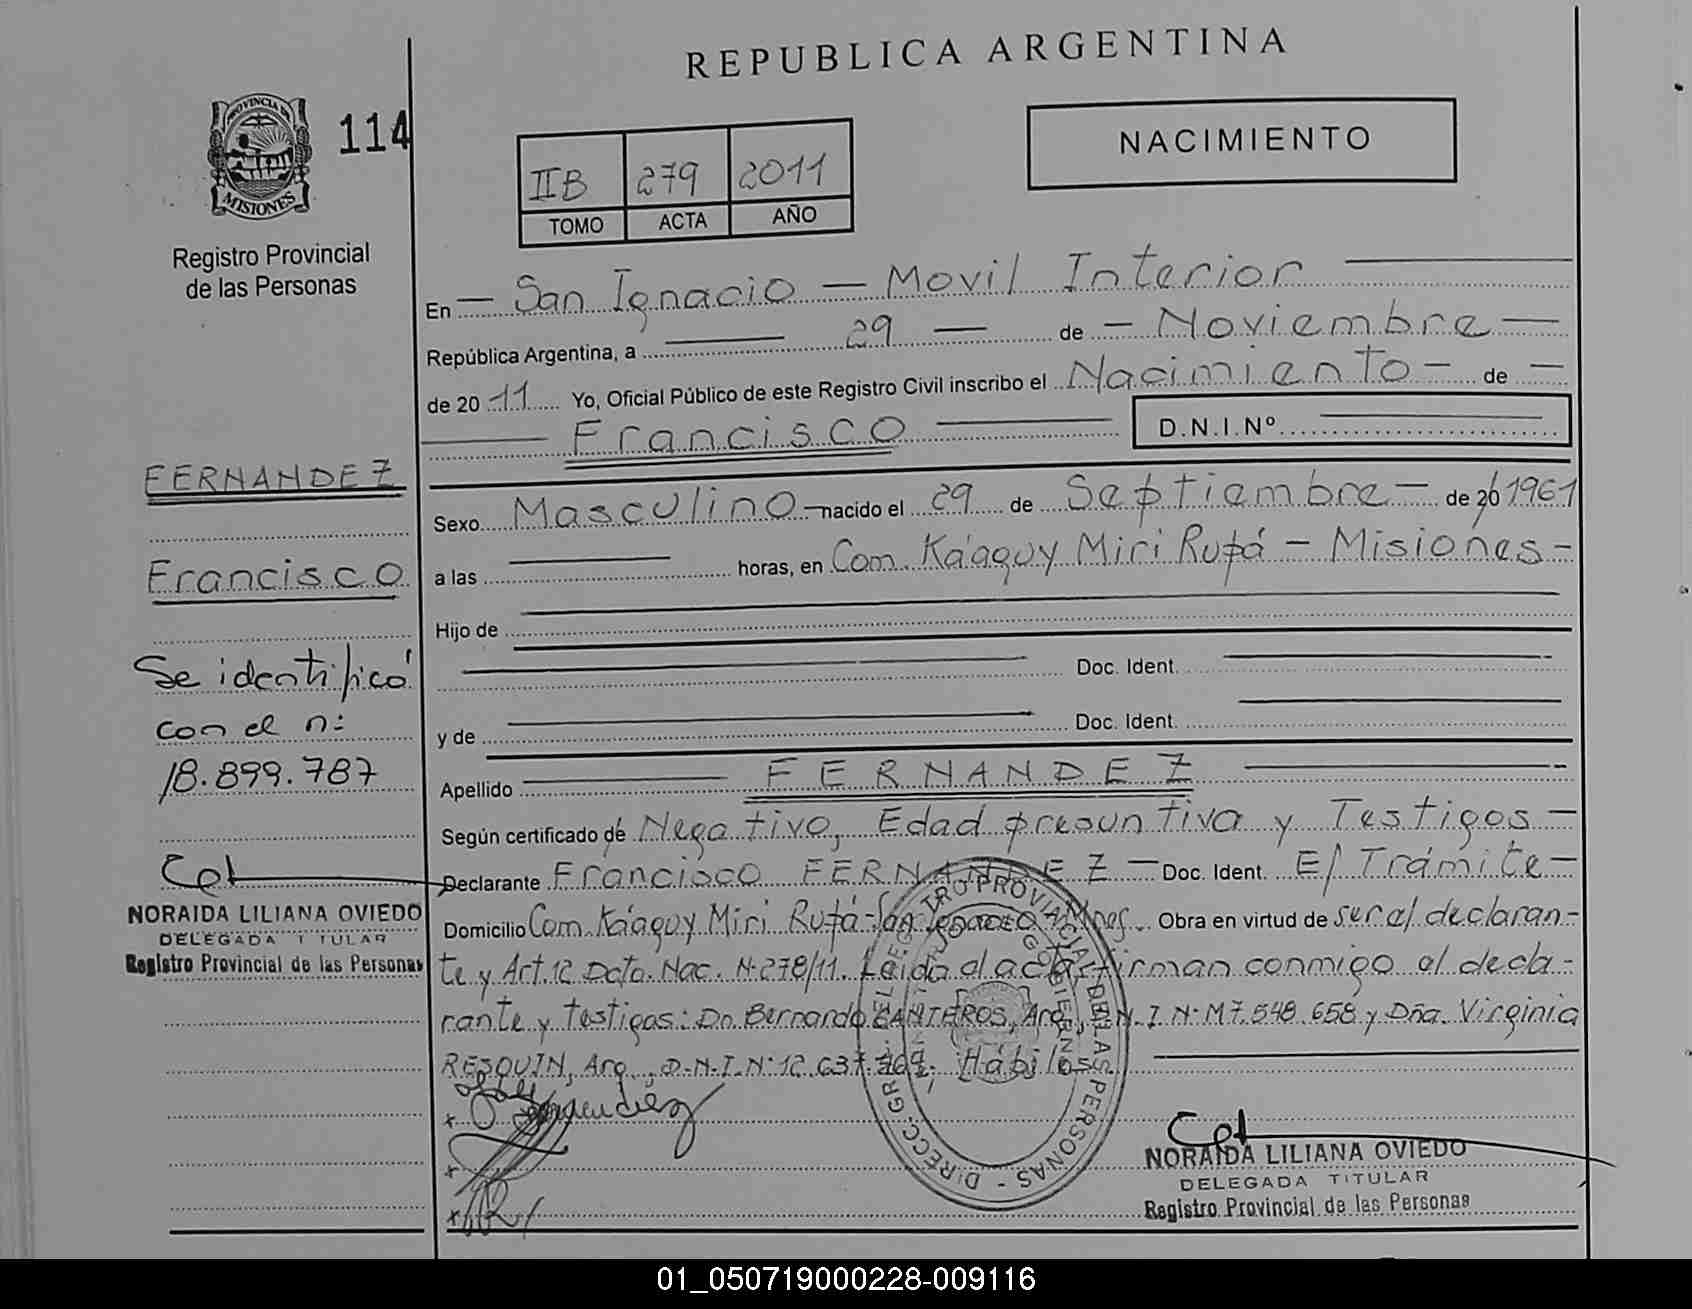 REPUBLICA ARGENTINA
PROVINCIA DE
MISIONES
114
Registro Provincial
de las Personas
IIB 279 2011
TOMO ACTA AÑO
NACIMIENTO
En — San Ignacio — Movil Interior
República Argentina, a 29 — de — Noviembre —
de 2011 Yo, Oficial Público de este Registro Civil inscribo el Nacimiento — de —
Francisco
D.N.I.Nº
Sexo Masculino — nacido el 29 de Septiembre — de 20 1961
a las horas, en Com. Ka'aguy Miri Rupá — Misiones —
Hijo de
Doc. Ident.
y de Doc. Ident.
Apellido FERNANDEZ
Según certificado de Negativo, Edad presuntiva y Testigos —
Declarante Francisco FERNANDEZ — Doc. Ident. E/ Trámite —
Domicilio Com. Ka'aguy Miri Rupá - San Ignacio Mnes. Obra en virtud de ser el declaran-
te y Art. 12 Dcto. Nac. N° 278/11. Leida el acta firman conmigo el decla-
rante y testigos: Dn. Bernardo CANTEROS, Arg., D.N.I. N° M7.548.658 y Dña. Virginia
RESQUIN, Arg., D.N.I. N° 12.637. Hábiles
FERNANDEZ
Francisco
Se identificó
con el n:
18.899.787
NORAIDA LILIANA OVIEDO
DELEGADA TITULAR
Registro Provincial de las Personas
NORAIDA LILIANA OVIEDO
DELEGADA TITULAR
Registro Provincial de las Personas
01_050719000228-009116